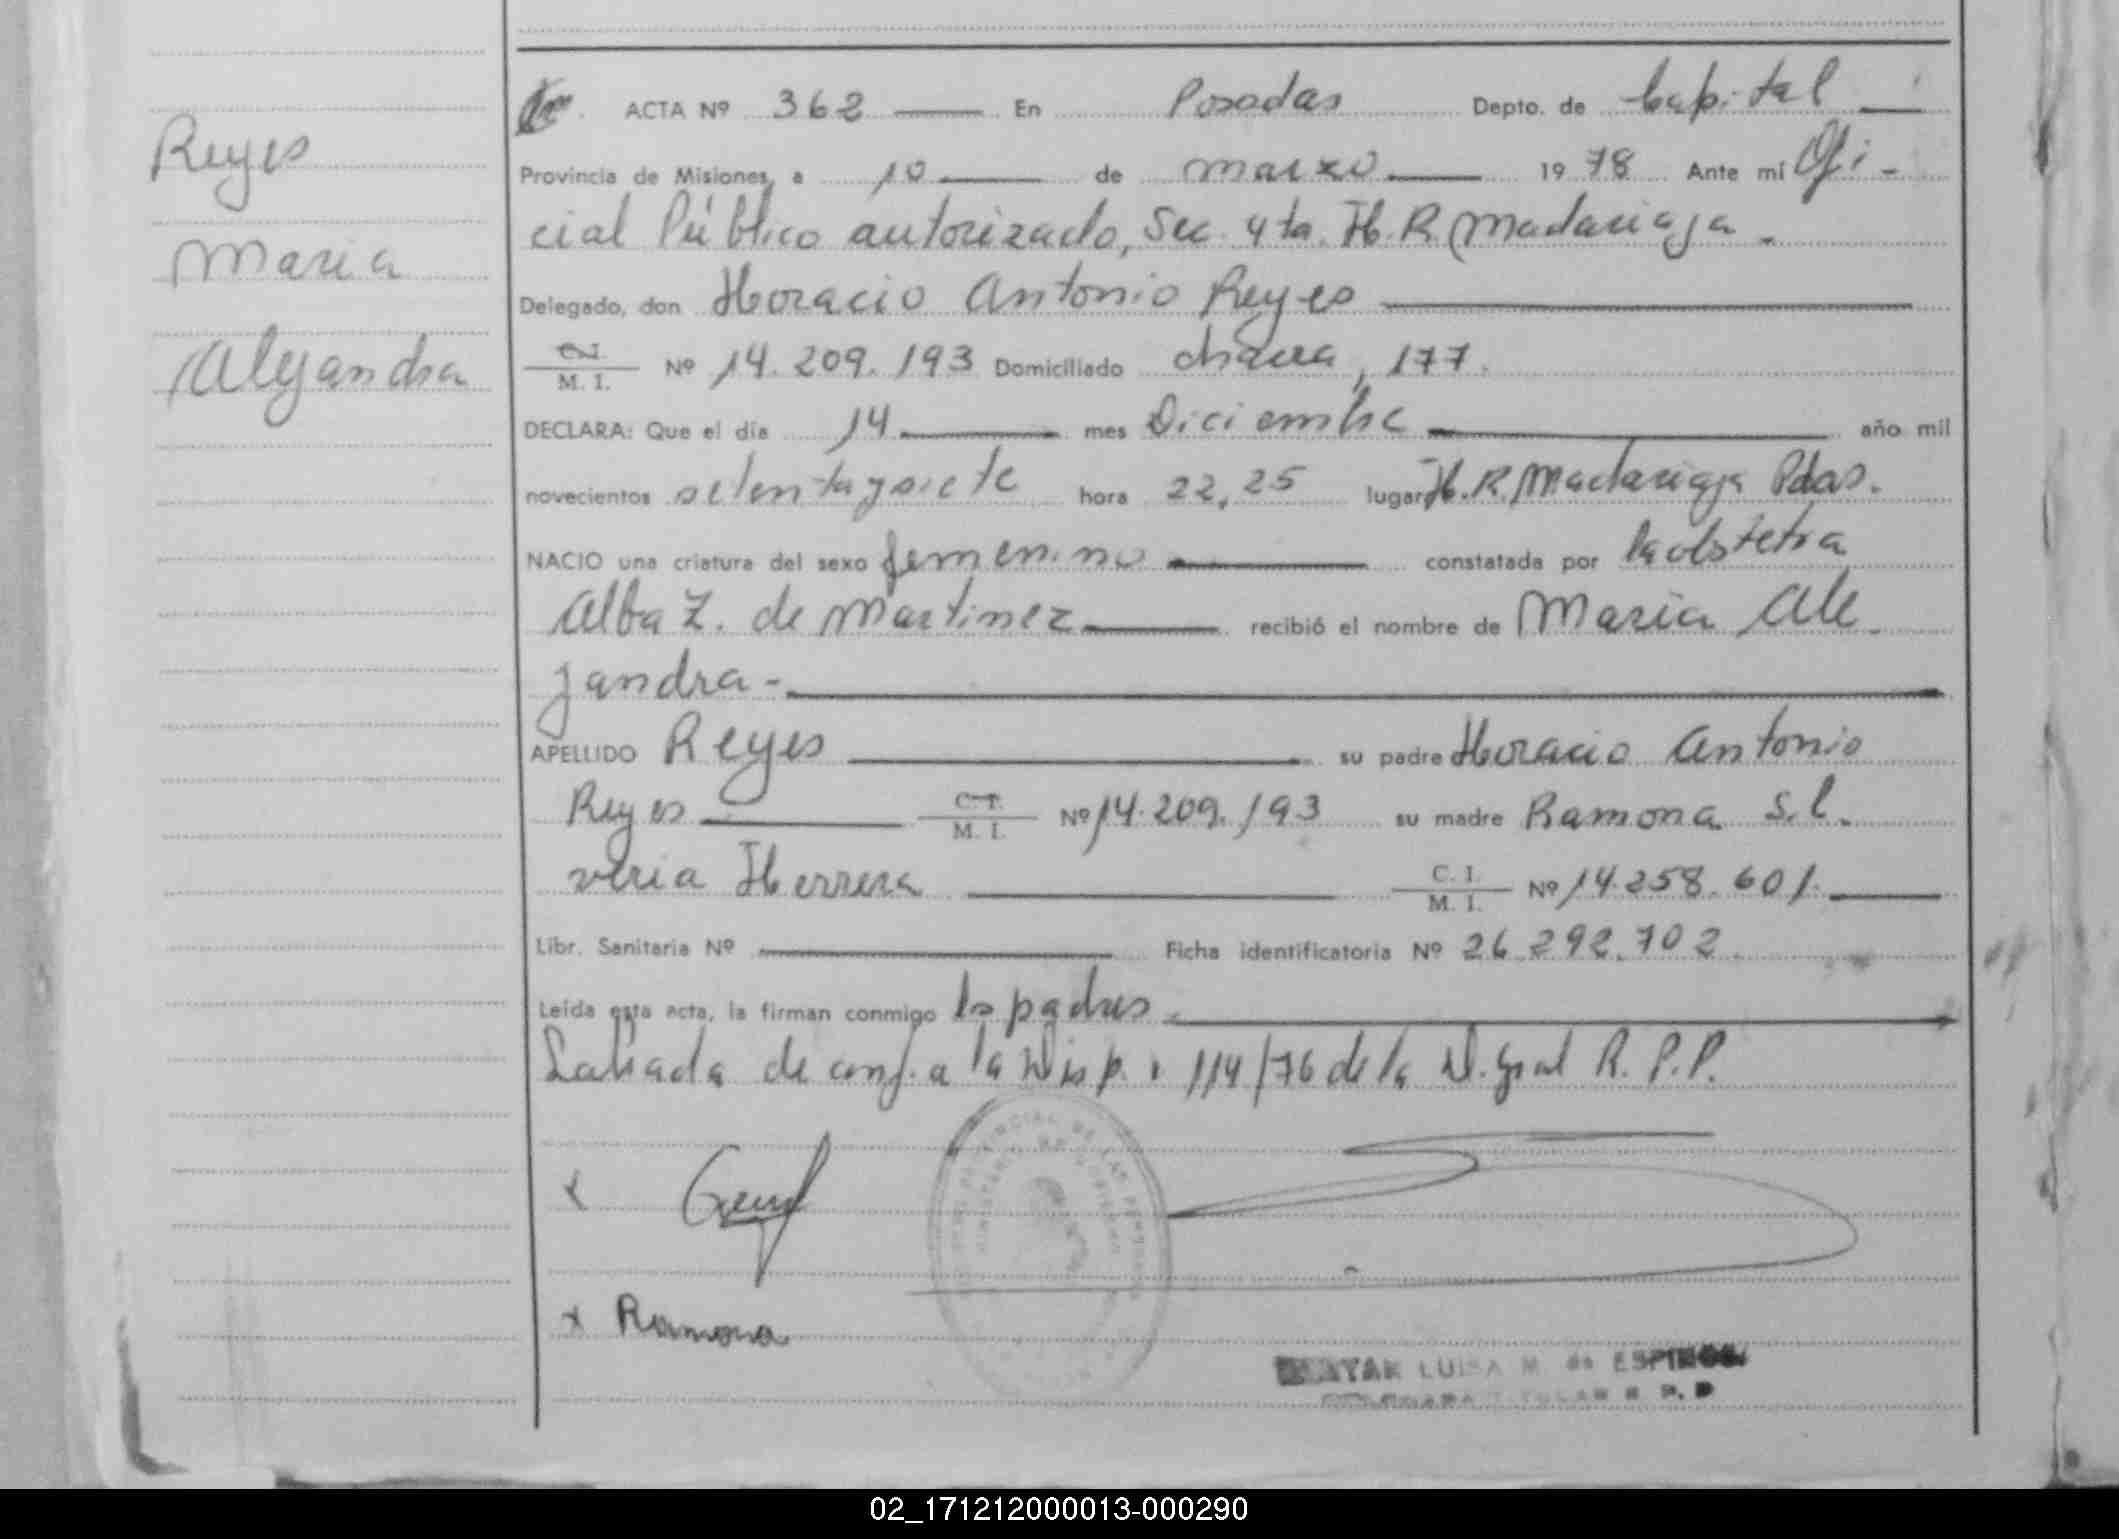 Reyes
Maria
Alejandra
ACTA Nº 362 En Posadas Depto. de Capital
Provincia de Misiones, a 10 de marzo 1978 Ante mí Ofi-
cial Público autorizado, Sec. 4ta. H. R. Madariaga -
Delegado, don Horacio Antonio Reyes
C. I. M. I. Nº 14.209.193 Domiciliado chacra, 177.
DECLARA: Que el día 14 mes Diciembre año mil
novecientos setenta y siete hora 22,25 lugar H. R. Madariaga Pdas.
NACIO una criatura del sexo femenino constatada por la obstetra
Alba Z. de Martinez recibió el nombre de Maria Ale
jandra -
APELLIDO Reyes su padre Horacio Antonio
Reyes C. I. M. I. Nº 14.209.193 su madre Ramona Sil-
veria Herrera C. I. M. I. Nº 14.258.601.
Libr. Sanitaria Nº Ficha identificatoria Nº 26.292.702.
Leída esta acta, la firman conmigo los padres.
Labrada de conf. a la Disp. 114/76 de la D. Gral R. P. P.
x
x Ramona
LUISA M. de ESPINOSA
02_171212000013-000290